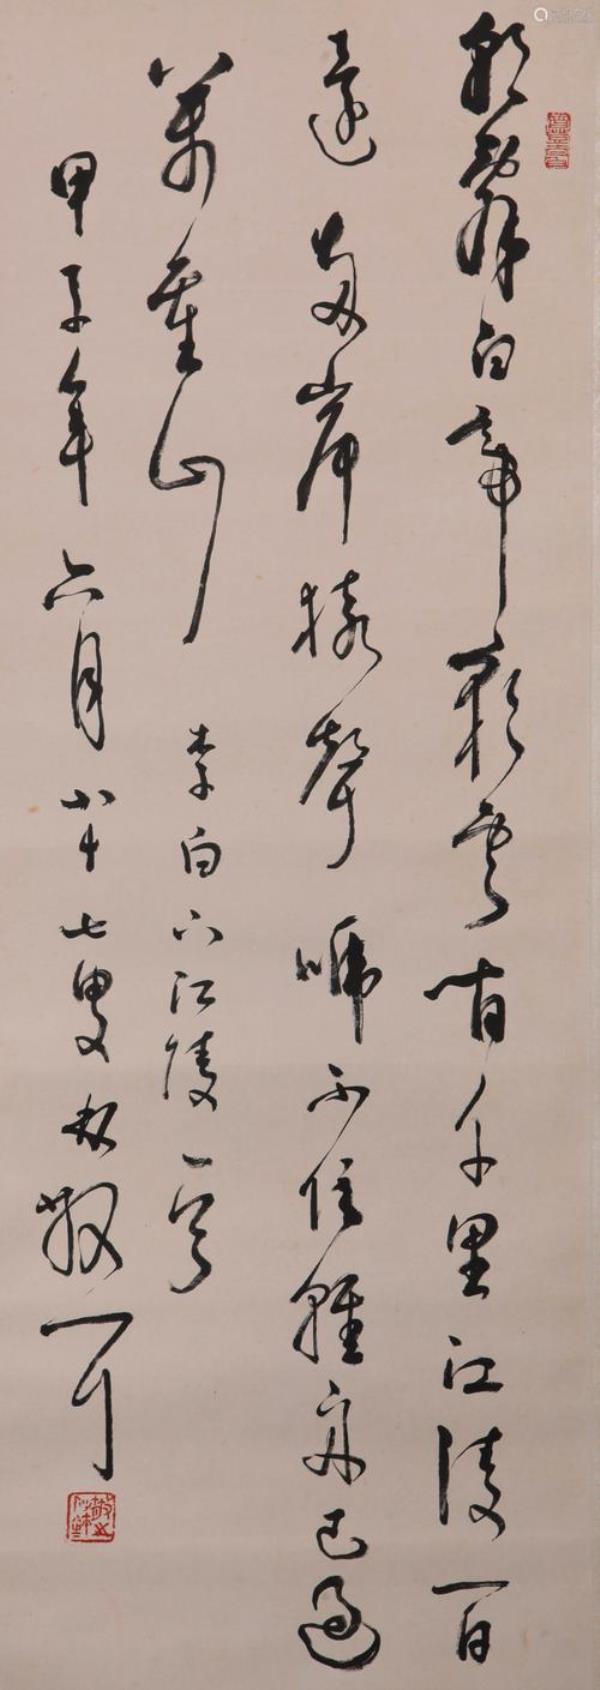 朝辭白帝彩雲間千里江陵一日
還兩岸猿聲啼不住輕舟已過
萬重山
李白下江陵一首
甲子年六月八十七叟林散耳